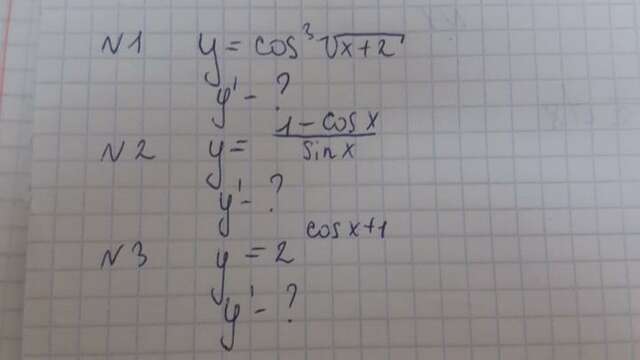 N1 y = cos³ √(x+2)
y' - ?
N2 y = (1 - cos x)/(sin x)
y' - ?
N3 y = 2^(cos x+1)
y' - ?